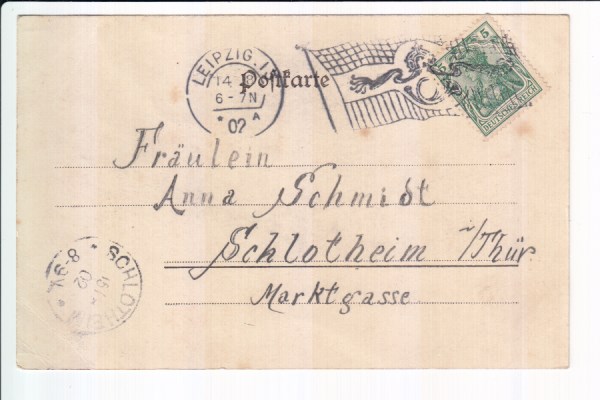 LEIPZIG. 1.
14
6-7N
* 02 A
Postkarte
5
DEUTSCHES REICH
Fräulein
Anna Schmidt
Schlotheim i/Thür.
Marktgasse
SCHLOTHEIM
02
8-9V.